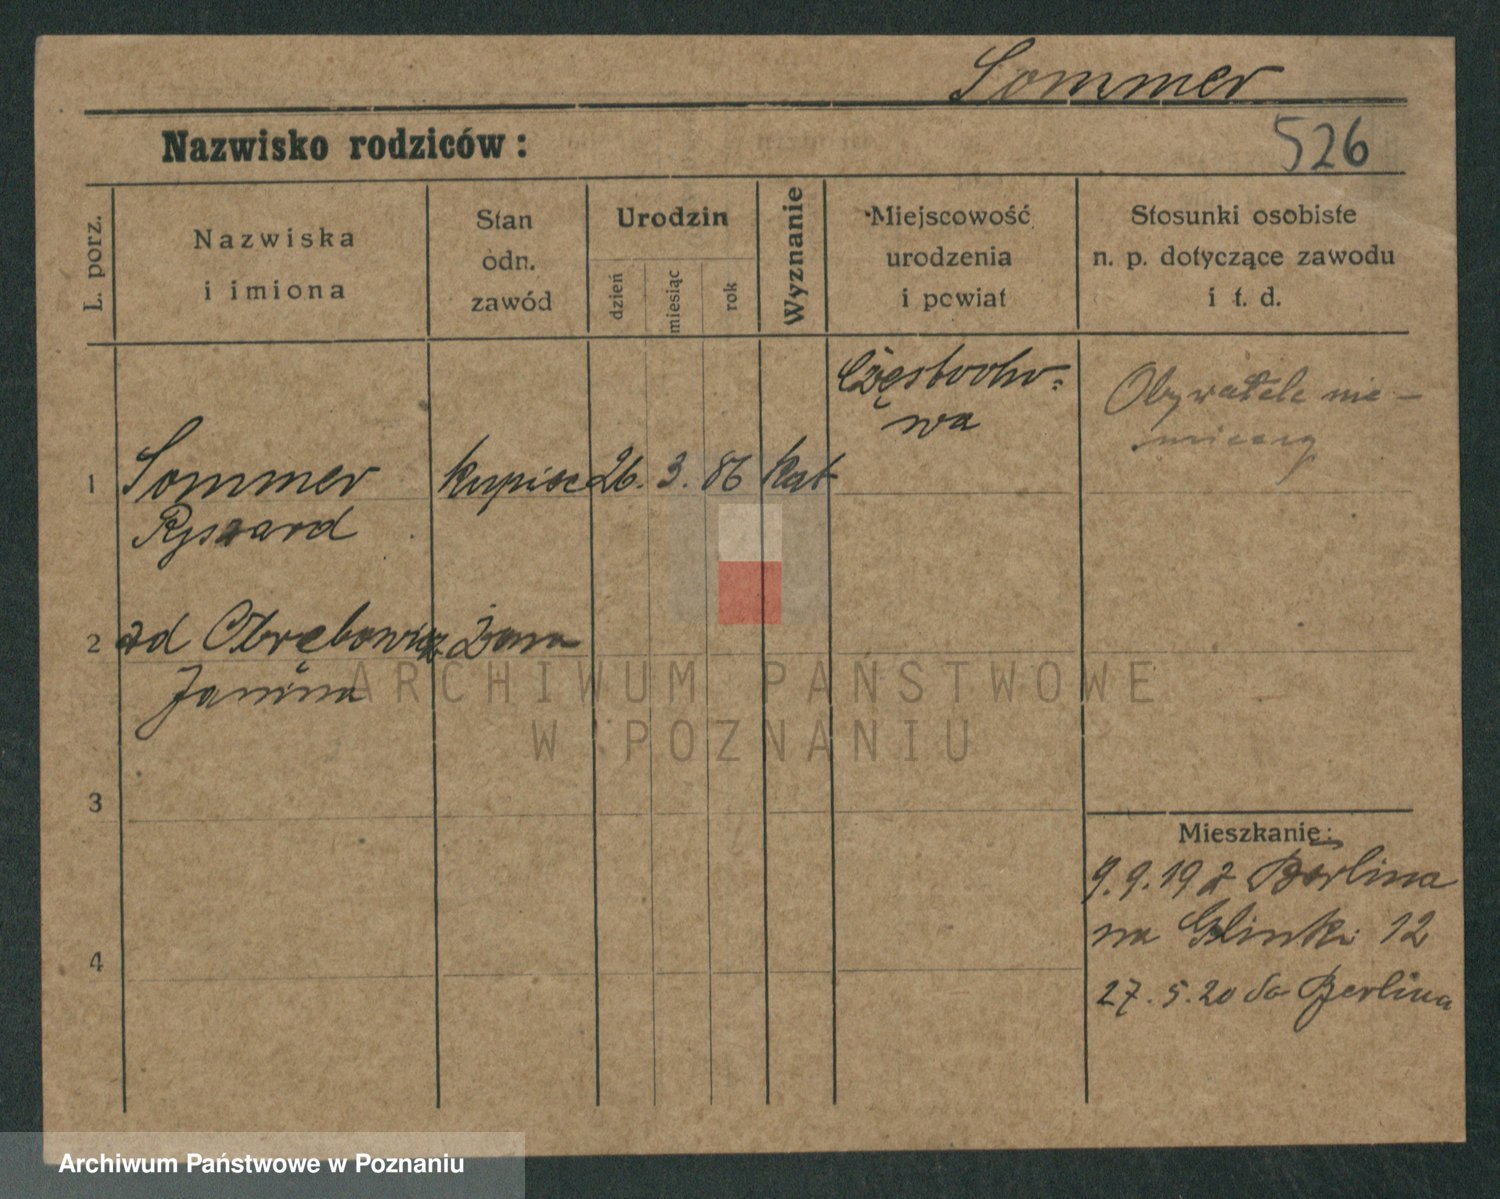 Sommer
Nazwisko rodziców:
526
L. porz.
Nazwiska
i imiona
Stan
odn.
zawód
Urodzin
dzień
miesiąc
rok
Wyznanie
Miejscowość
urodzenia
i powiat
Stosunki osobiste
n. p. dotyczące zawodu
i t. d.
Częstocho=
wa
Obywatele nie-
mieccy
1 Sommer kupiec 26. 3. 86 kat
Ryszard
2 zd Obrębowicz żona
Janina
ARCHIWUM PAŃSTWOWE
W POZNANIU
3
Mieszkanie:
9.9.19 z Berlina
na Glinki 12
4
27.5.20 do Berlina
Archiwum Państwowe w Poznaniu